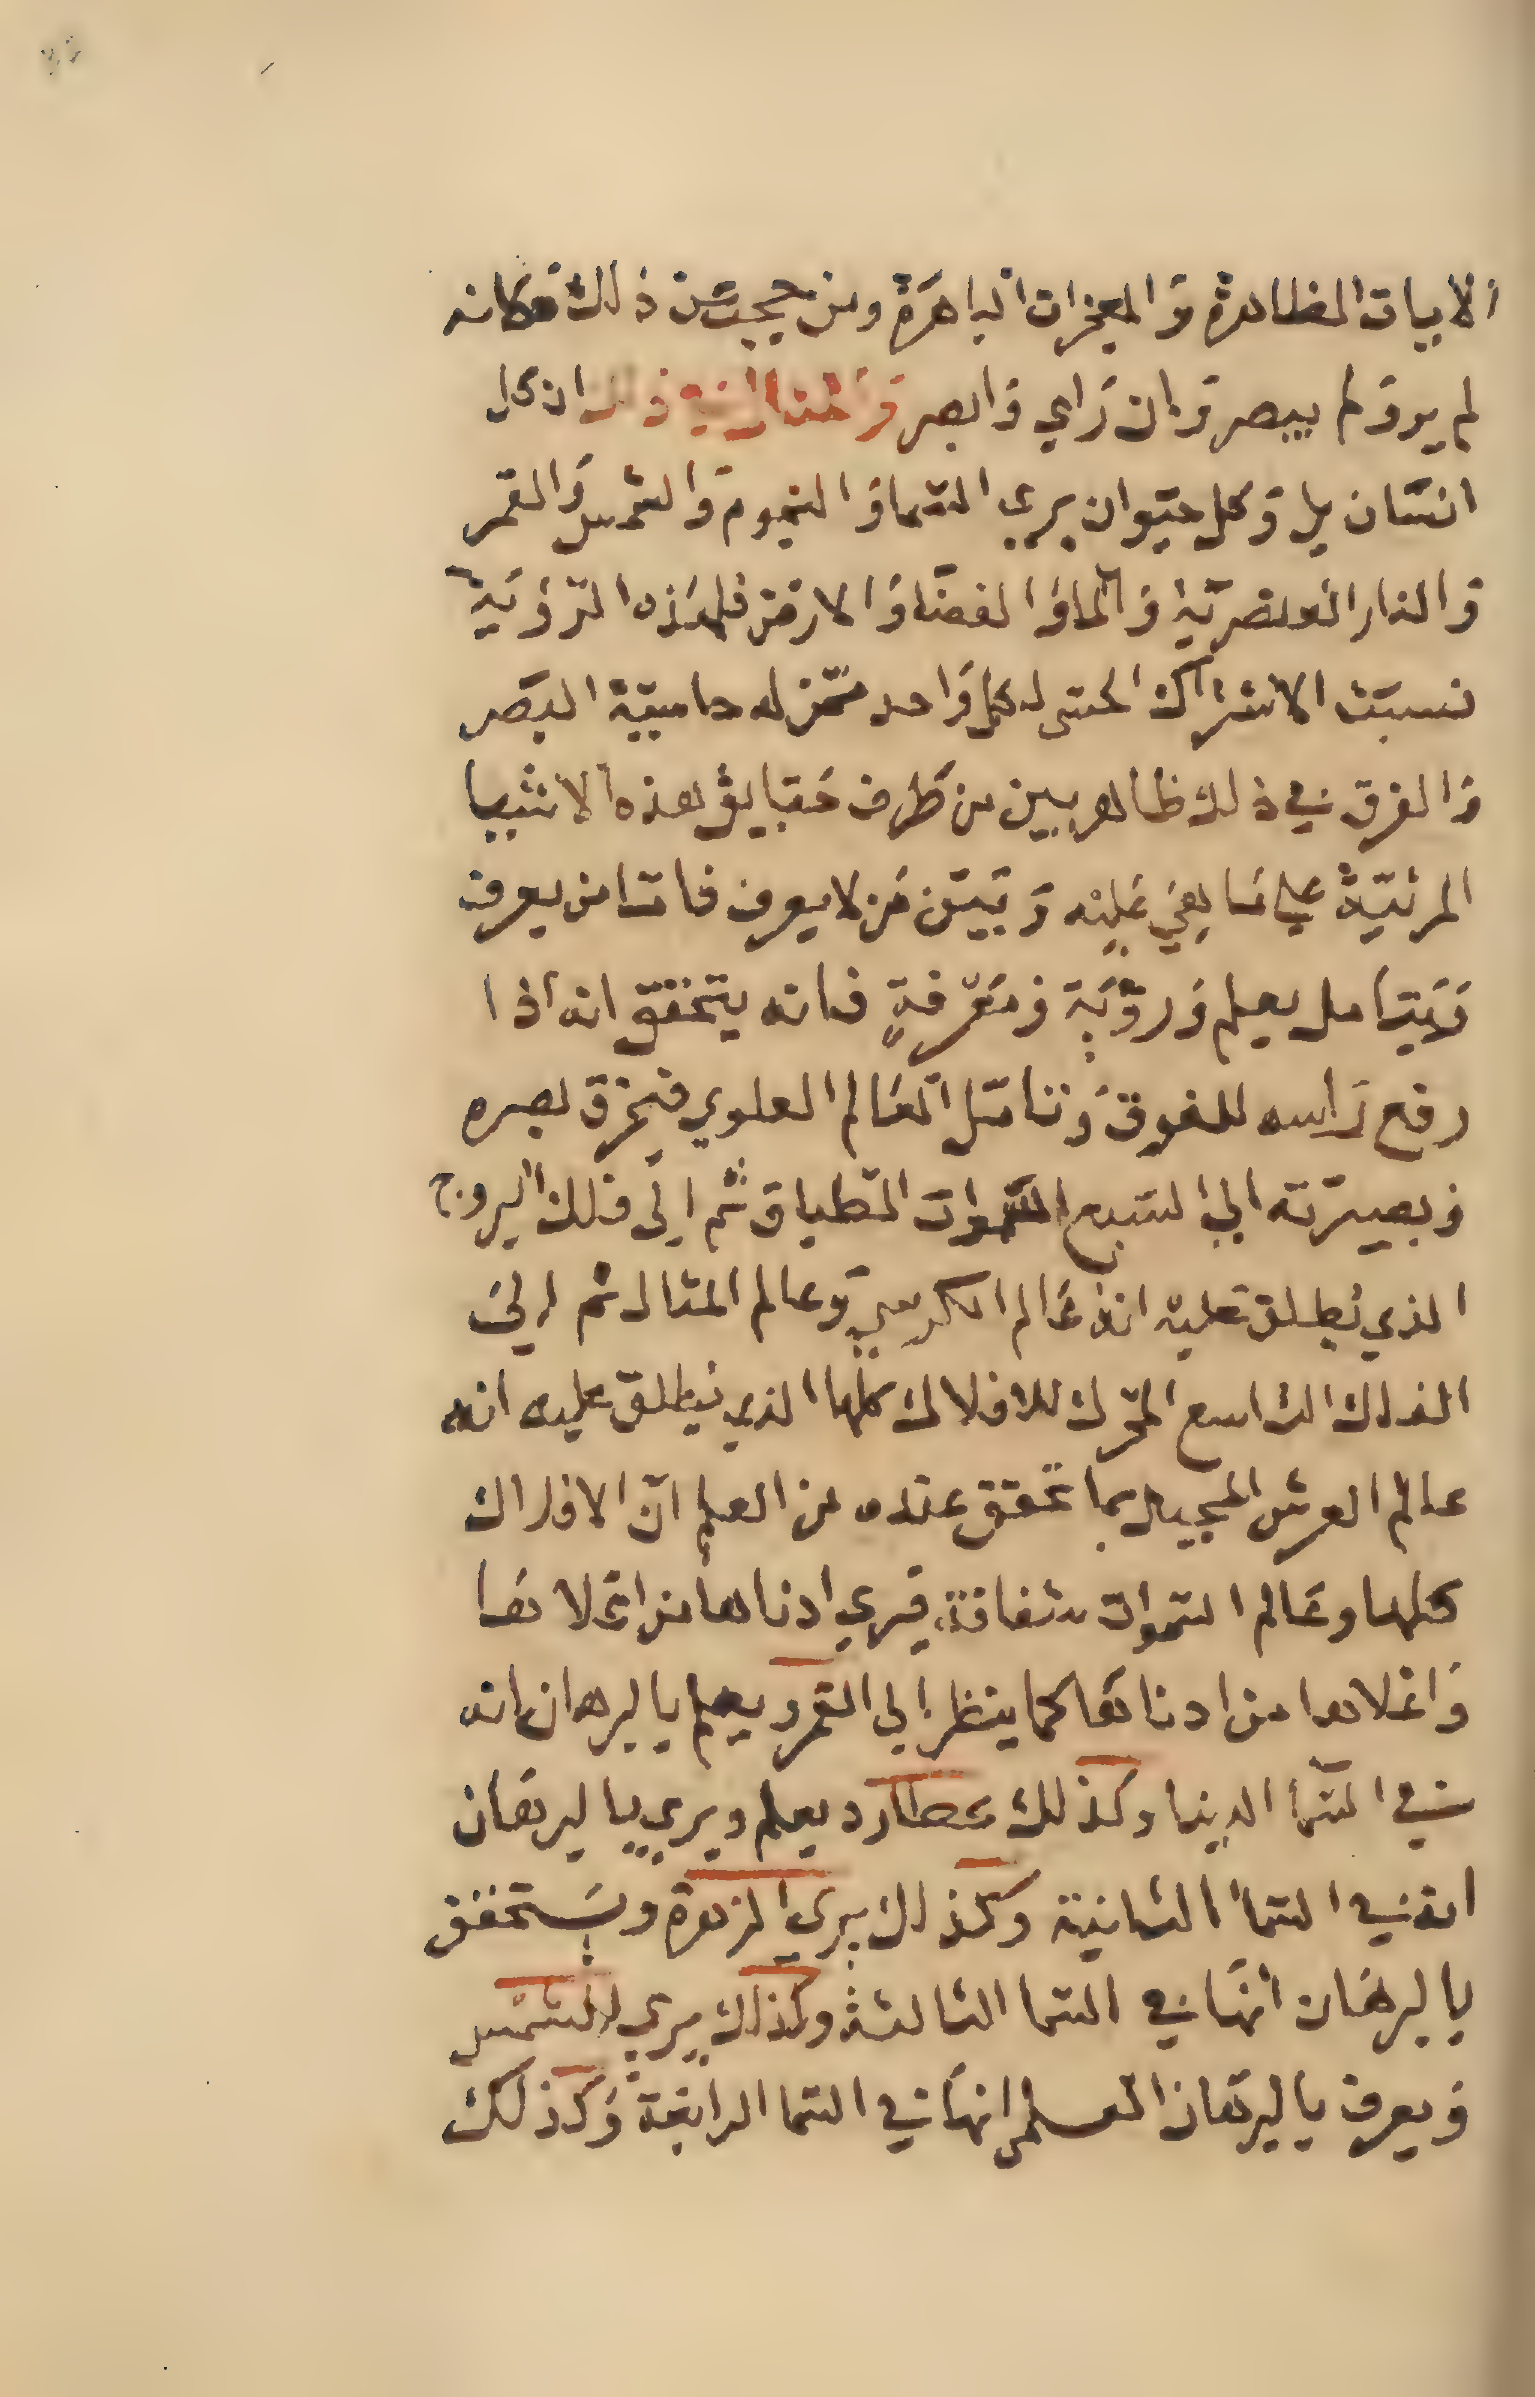 الايات الظاهرة والمعجزات الباهرة ومن حجبت عن ذلك فكانه
لم ير ولم يبصر وان راي وابصر ومثال ذلك ان كل
انسان بل وكل حيوان يري السما والنجوم والشمس والقمر
والنار العنصرية والما والفضا والارض فلهذه الرؤية
نسبت الاشتراك الحسي لكل واحد ممن له حاسية البصر
والفرق في ذلك ظاهر بين من طرف حقايق هذه الاشيا
المرئية علي ما هي عليه وبين من لا يعرف فاما من يعرف
ويتامل بعلم ورؤية ومعرفة فانه يتحقق انه اذا
رفع راسه للفوق وتامل العالم العلوي فيخرق بصره
وبصيرته الي السبع السموات الطباق ثم الي فلك البروج
الذي يطلق عليه انه عالم الكرسي وعالم المثال ثم الي
الفلك التاسع المحرك للافلاك كلها الذي يطلق عليه انه
عالم العرش المجيد بما تحقق عنده من العلم ان الافلاك
كلها وعالم السموات شفافة يري ادناها من اعلاها
واعلاها من ادناها كما ينظر الي القمر ويعلم بالبرهان انه
في السما الدنيا وكذلك عطارد يعلم ويري بالبرهان
انه في السما الثانية وكذلك يري الزهرة ويستحقق
بالبرهان انها في السما الثالثة وكذلك يري الشمس
ويعرف بالبرهان العلمي انها في السما الرابعة وكذلك